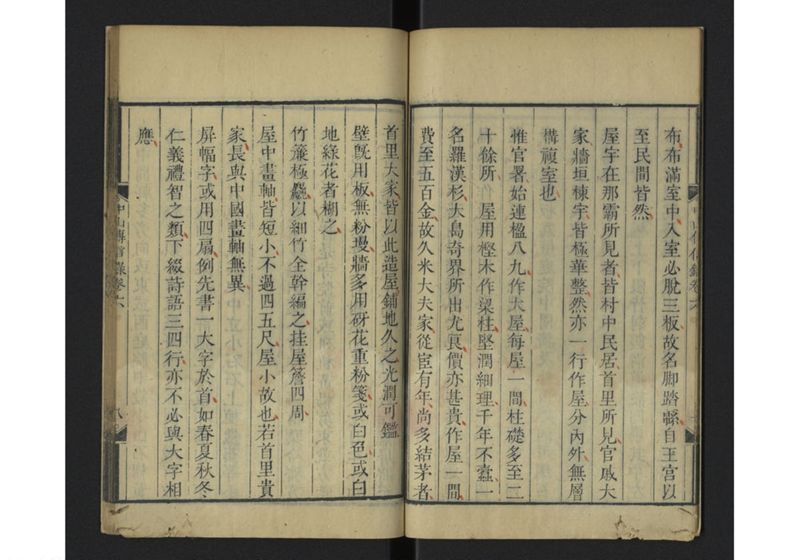 布布滿室中入室必脫三板故名脚踏緜自王宮以
至民間皆然
屋宇在那霸所見者皆村中民居首里所見官戚大
家牆垣棟宇皆極華整然亦一行作屋分內外無層
構複室也
惟官署始連楹八九作大屋每屋一間柱礎多至二
十餘所 屋用樫木作梁柱堅潤細理千年不蠧一
名羅漢杉大島奇界所出尤良價亦甚貴作屋一間
費至五百金故久米大夫家從宦有年尚多結茅者
首里大家皆以此造屋鋪地久之光潤可鑑
壁旣用板無粉墁牆多用砑花重粉箋或白色或白
地綠花者糊之
竹簾極麤以細竹全幹編之挂屋簷四周
屋中畫軸皆短小不過四五尺屋小故也若首里貴
家長與中國畫軸無異
屏幅字或用四扇例先書一大字於首如春夏秋冬
仁義禮智之類下綴詩語三四行亦不必與大字相
應
中山傳信錄卷六
八